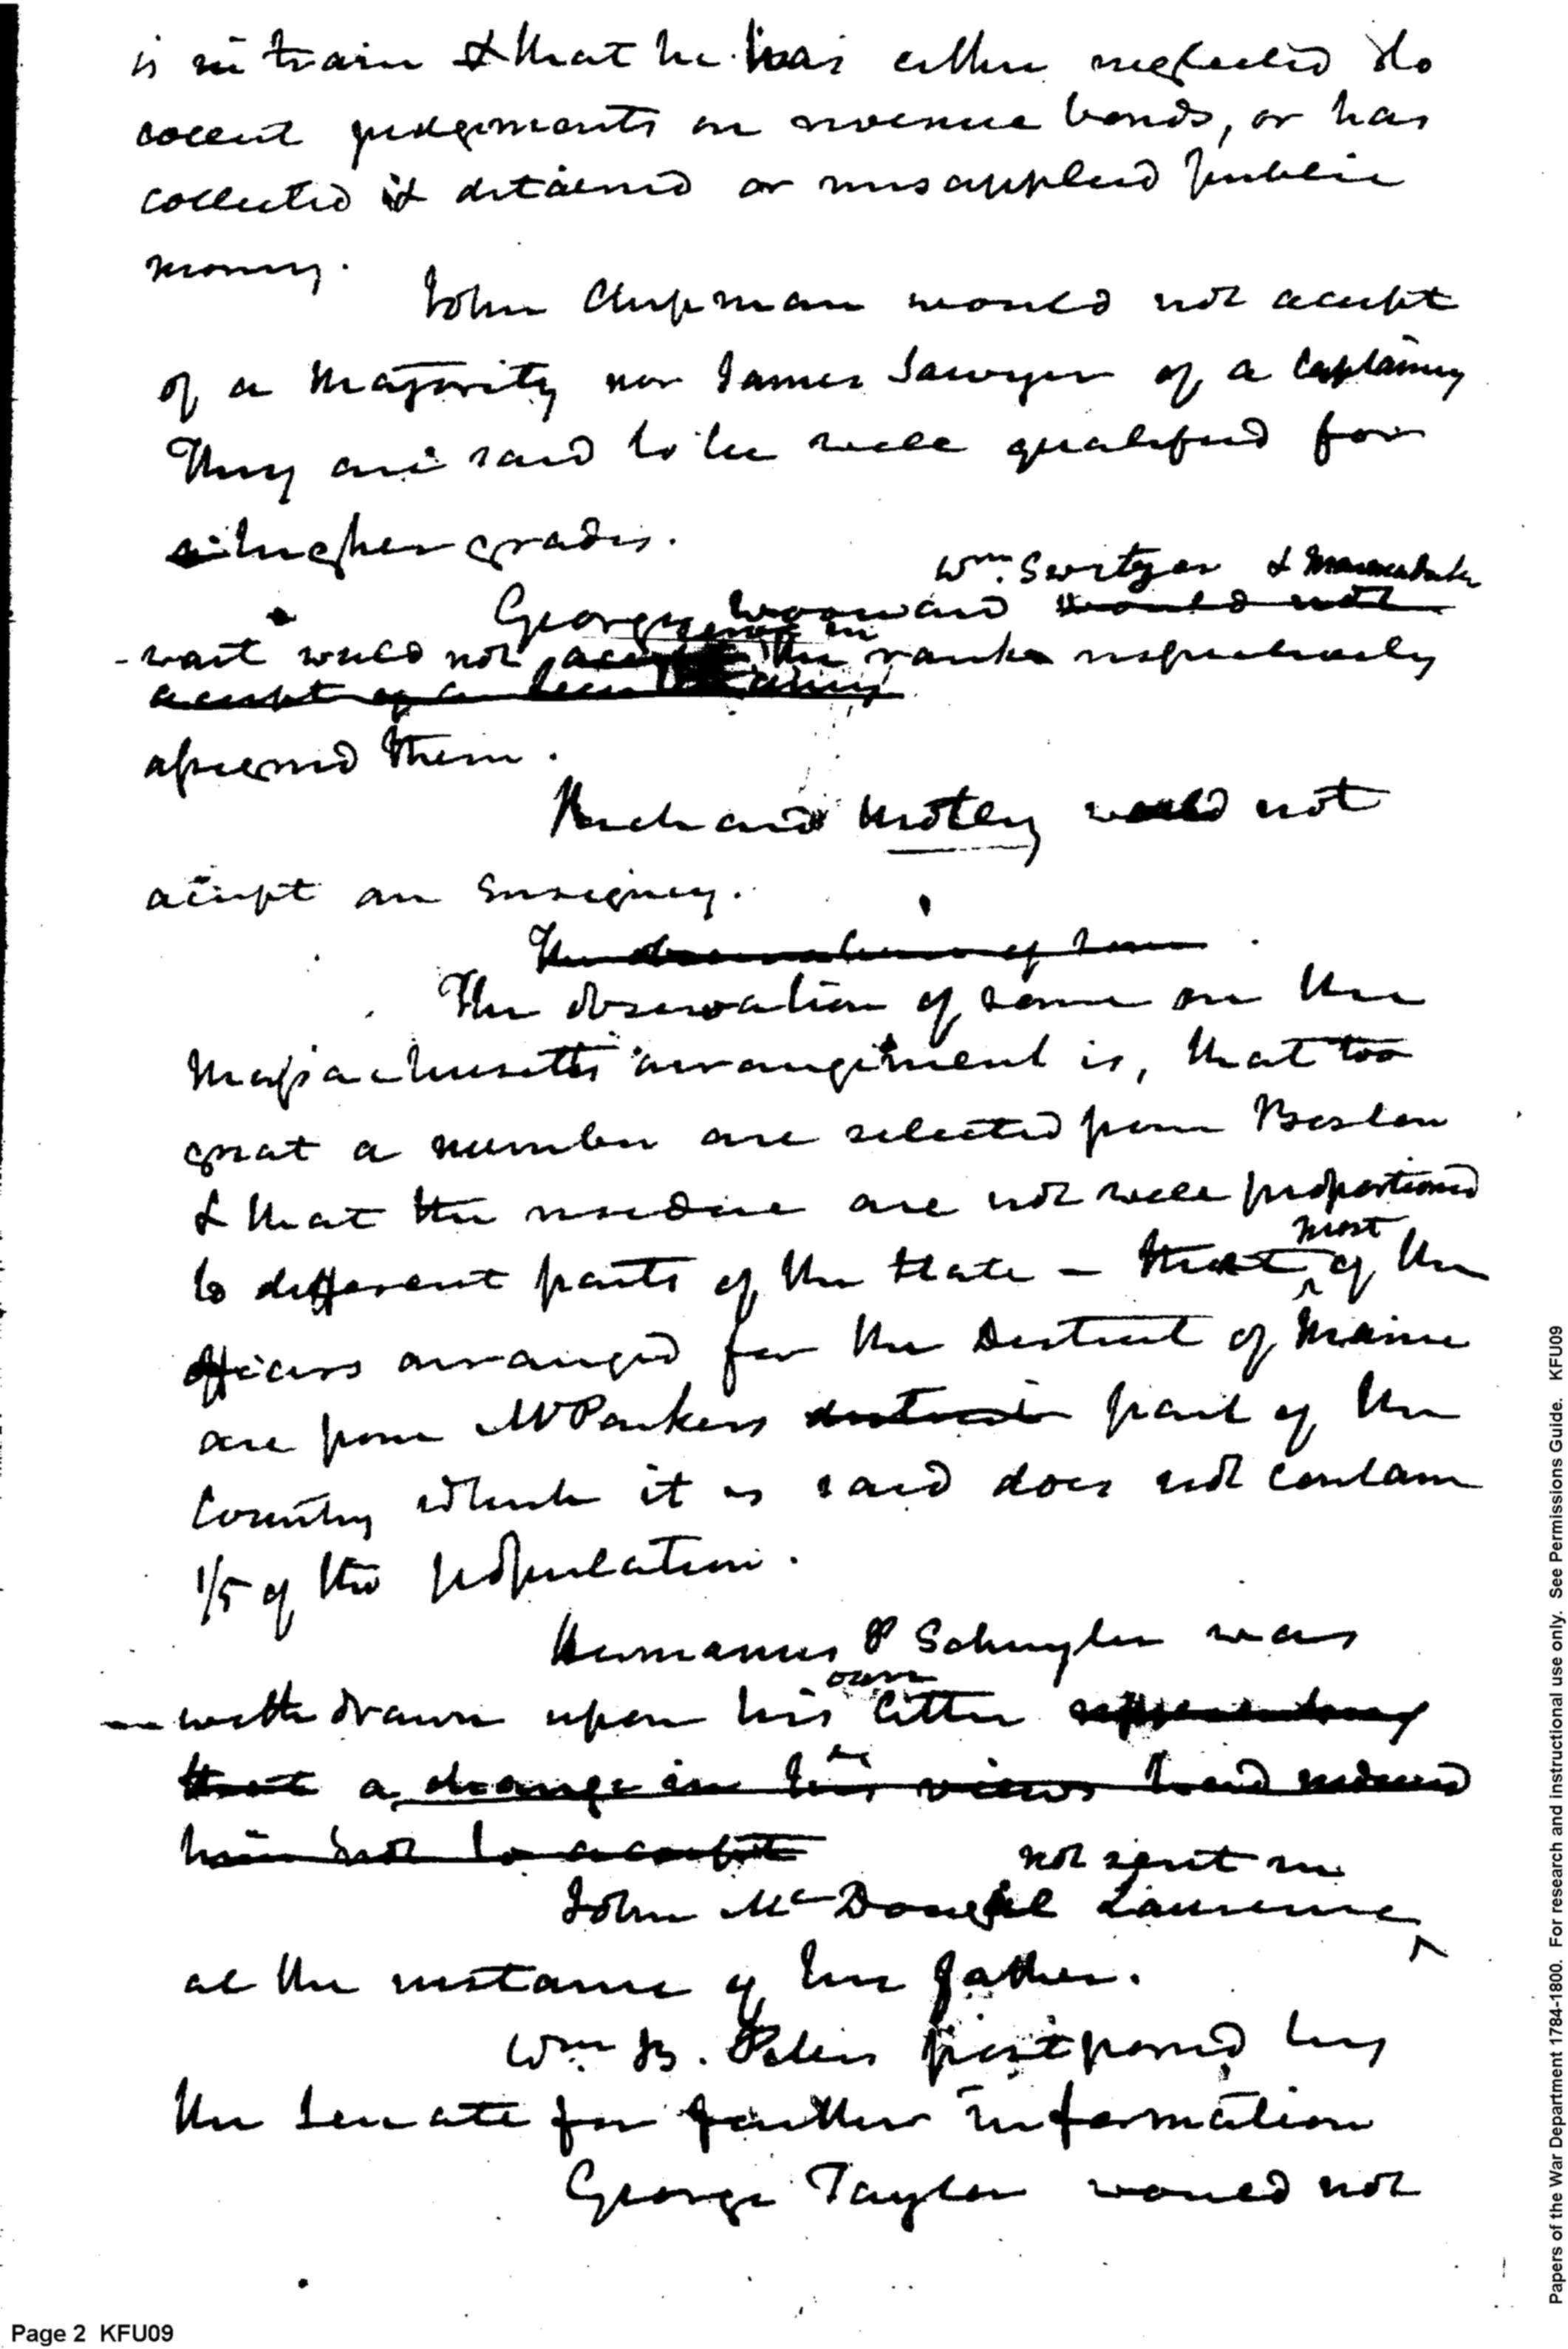 is in train & that he has either neglected to
collect judgements on revenue bonds, or has
collected & detained or misapplied public
money.
John Chipman would not accept
of a Majority nor James Sawyer of a Captaincy
They are said to be well qualified for
higher grades.
Wm. Swityer & Marmaduke
George Woodward would not
- wait would not accept the ranks respectively
accept of a
assigned them.
Richard Motley would not
accept an Ensigncy.
The observation of some
The observation of some on the
Massachusetts arrangement is, that too
great a number are selected from Boston
& that the residue are not well proportioned
most
to different parts of the State - that of the
officers arranged for the District of Maine
are from Mr Parkers district part of the
Country which it is said does not contain
1/5 of the population.
Hermanus P Schuyler was
own
withdrawn upon his letter representing
that a change in his views had induced
him not to accept
not sent in
John Mc Dougal Laurence
at the instance of his father.
Wm B. Peters postponed by
the Senate for farther information
George Taylor would not
Page 2 KFU09
Papers of the War Department 1784-1800. For research and instructional use only. See Permissions Guide. KFU09